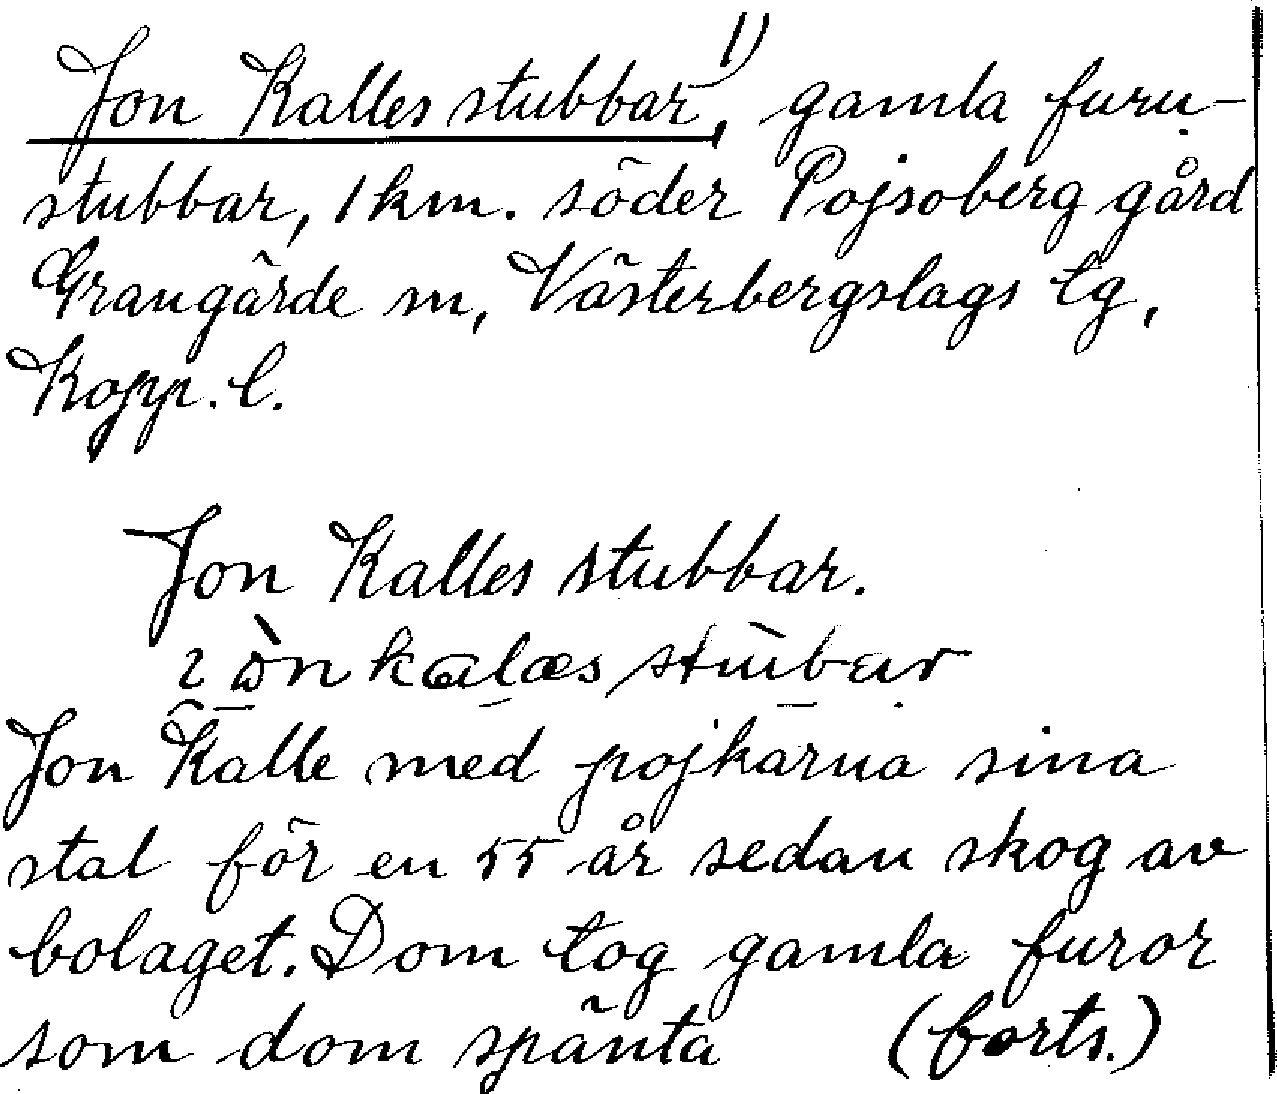 Jon Kalles stubbar,¹⁾ gamla furu-
stubbar, 1 km. söder Pojsoberg gård
Grangärde sn, Västerbergslags tg,
Kopp. l.
Jon Kalles stubbar.
Jon Kalle med pojkarna sina
stal för en 55 år sedan skog av
bolaget. Dom tog gamla furor
som dom spänta (forts.)